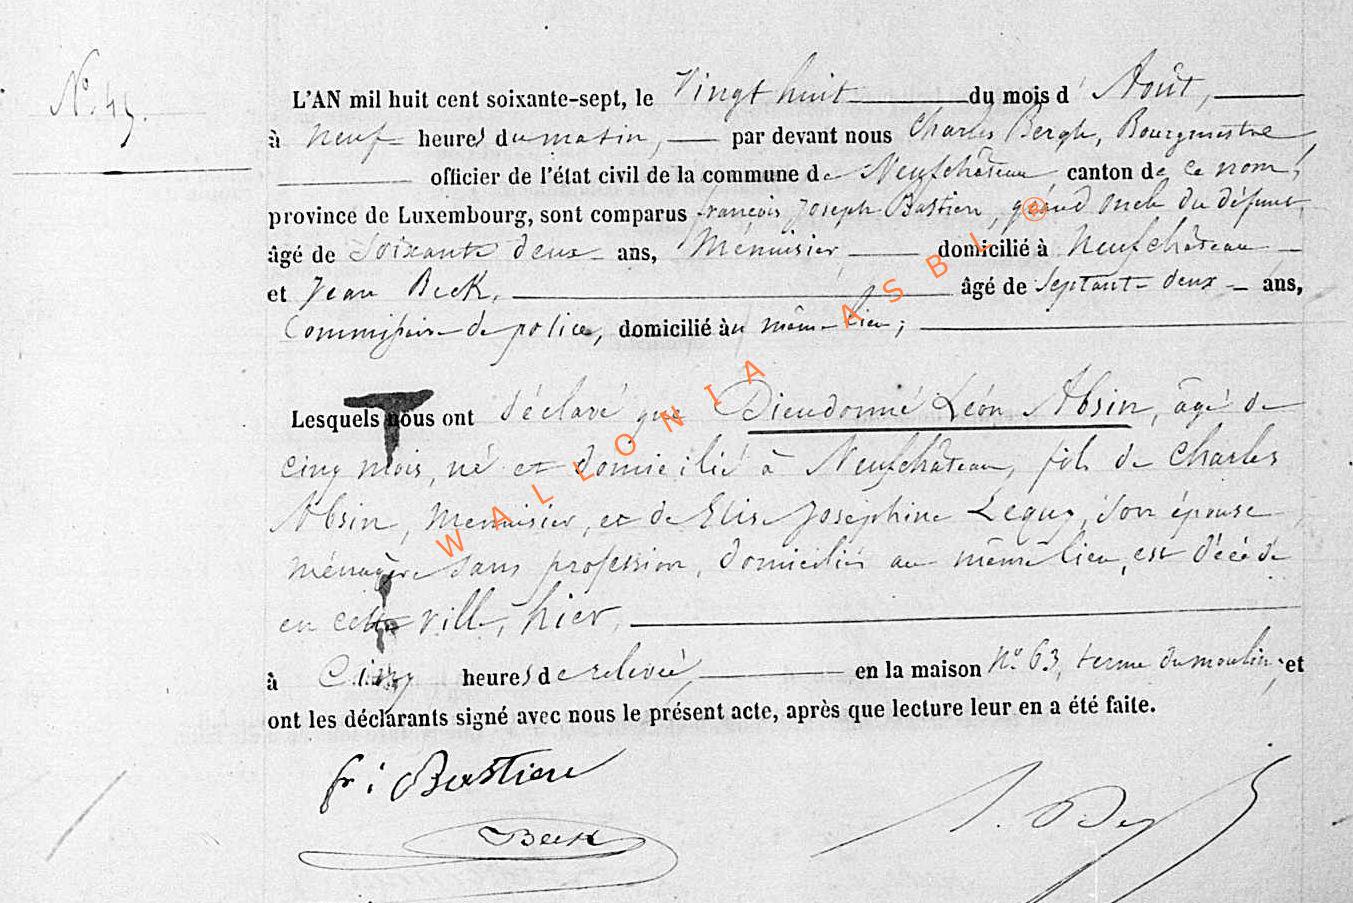 N° 45.
L'AN mil huit cent soixante-sept, le Vingt huit du mois d' Août,
à neuf heures du matin, par devant nous Charles Bergh, Bourgmestre,
officier de l'état civil de la commune de Neufchâteau canton de ce nom,
province de Luxembourg, sont comparus françois Joseph Bastien, grand oncle du défunt,
âgé de Soixante deux ans, Menuisier, domicilié à Neufchâteau
et Jean Beck, âgé de Septante deux ans,
Commissaire de police, domicilié au même lieu;
Lesquels nous ont déclaré que Dieudonné Léon Absin, âgé de
cinq mois, né et domicilié à Neufchâteau, fils de Charles
Absin, Menuisier, et de Elise Joséphine Lequy, son épouse
ménagère sans profession, domiciliés au même lieu, est décédé
en cette ville, hier,
à Cinq heures de relevée, en la maison N° 63, terme du moulin, et
ont les déclarants signé avec nous le présent acte, après que lecture leur en a été faite.
fr: Bastien
Beck
WALLONIA ASBL ®